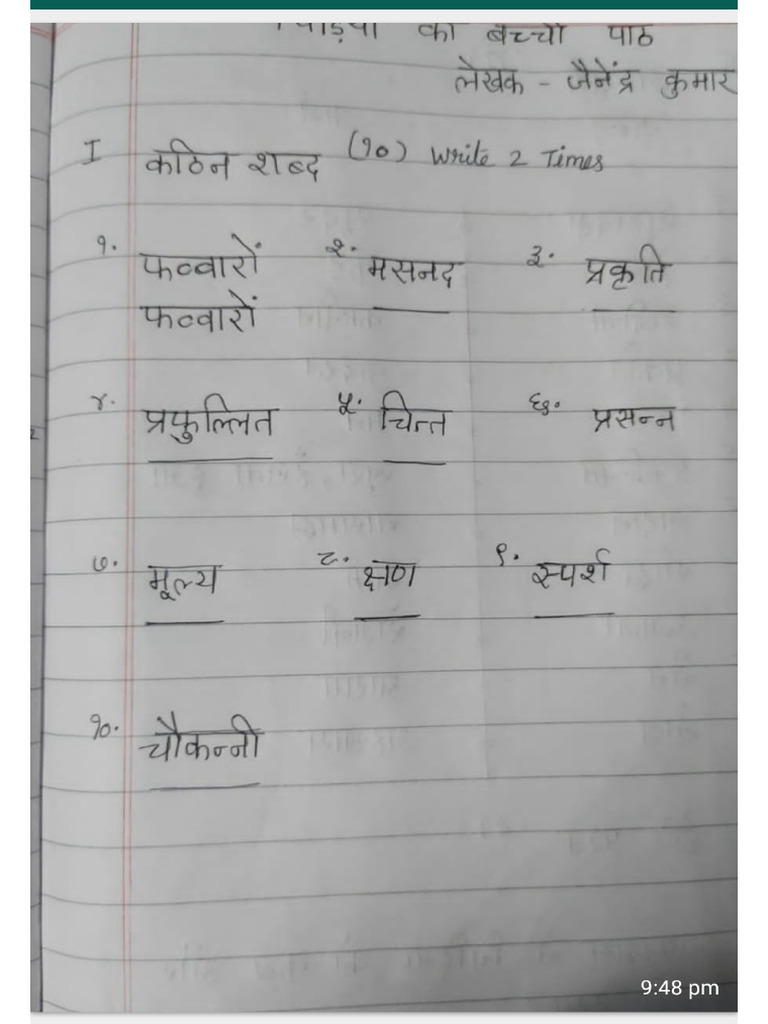 चिड़िया की बच्ची पाठ
लेखक - जैनेंद्र कुमार
I कठिन शब्द (१०) Write 2 Times
१. फव्वारों २. मसनद ३. प्रकृति
फव्वारों
४. प्रफुल्लित ५. चिन्त ६. प्रसन्न
७. मूल्य ८. क्षण ९. स्पर्श
१०. चौकन्नी
9:48 pm